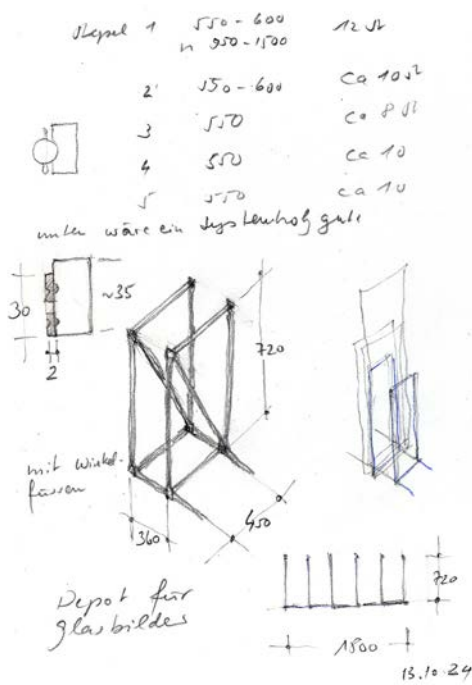 Stapel 1 550-600 12 St
n 950-1500
2 550-600 ca 10 St
3 550 ca 8 St
4 550 ca 10
5 550 ca 10
unten wäre ein Systemholz gut
30
~35
2
720
mit Winkel-
füssen
360
450
Depot für
glasbilder
720
1800
13.10.24